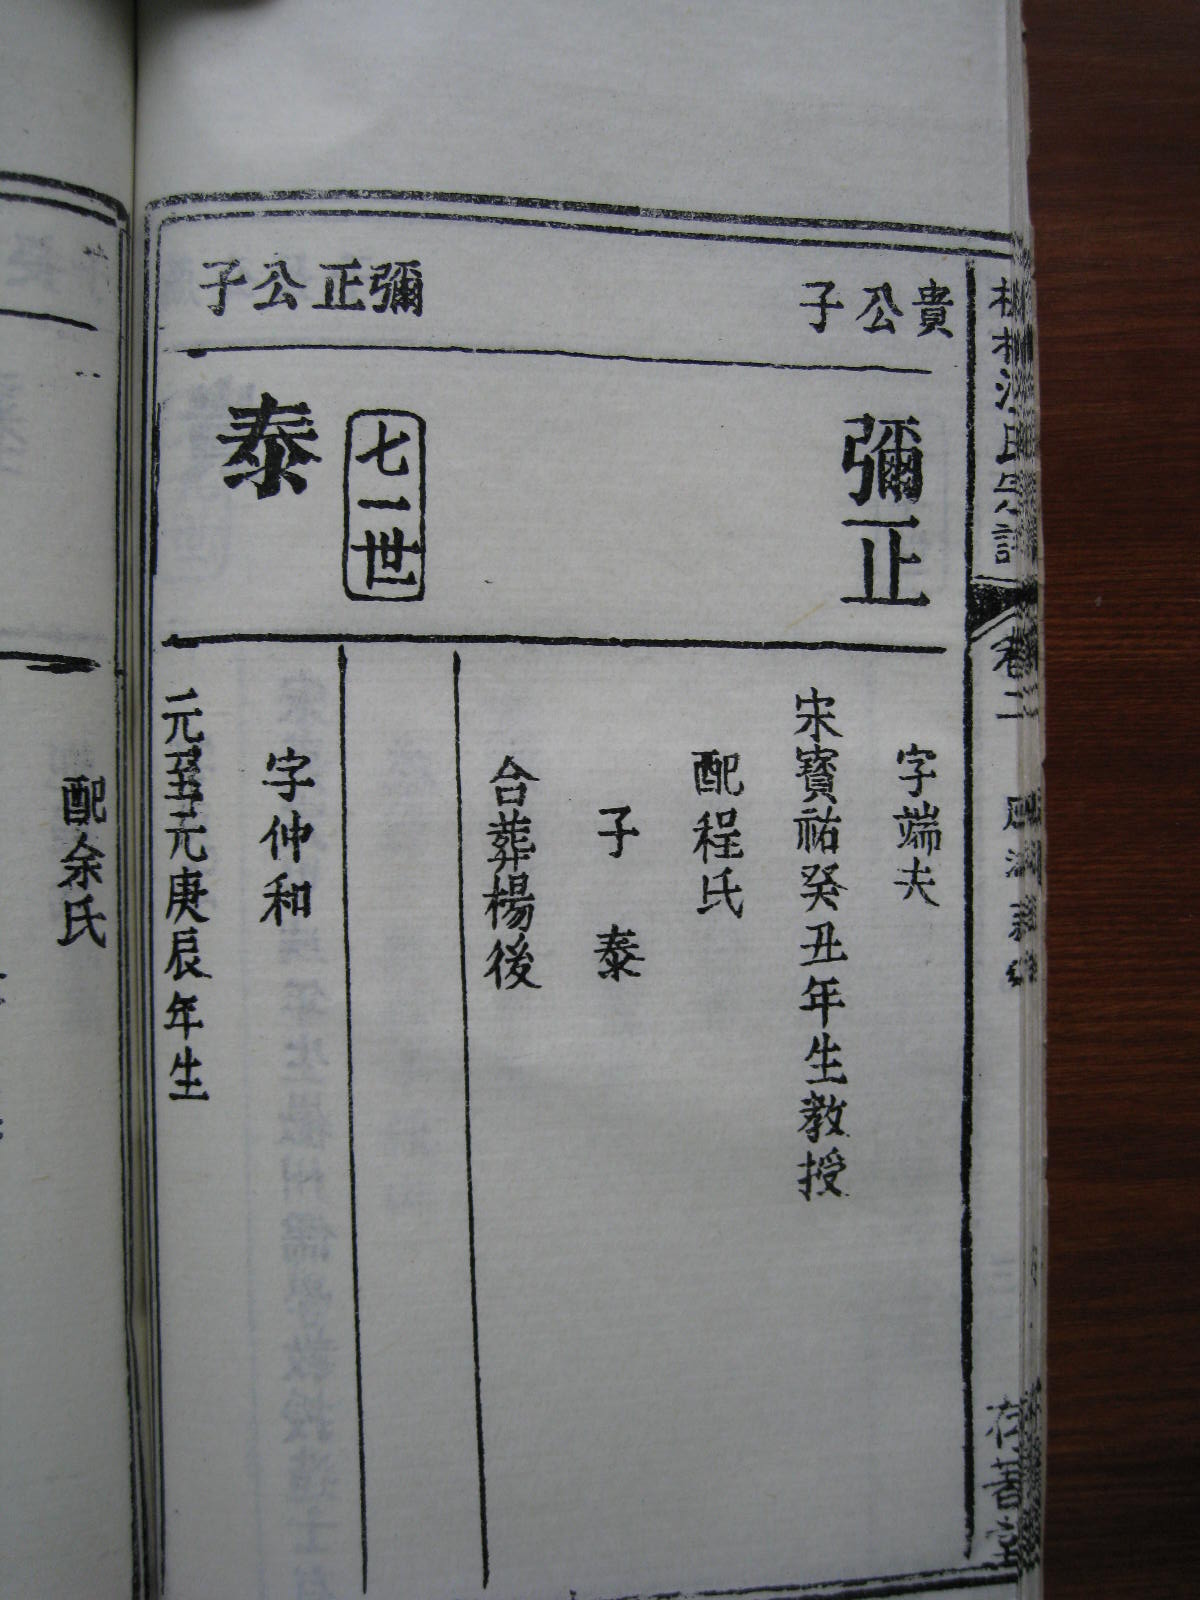 貴公子
彌正
字端夫
宋寶祐癸丑年生教授
配程氏
子 泰
合葬楊後
七一世
彌正公子
泰
字仲和
元至元庚辰年生
配余氏
氏宗譜
卷二
存著堂